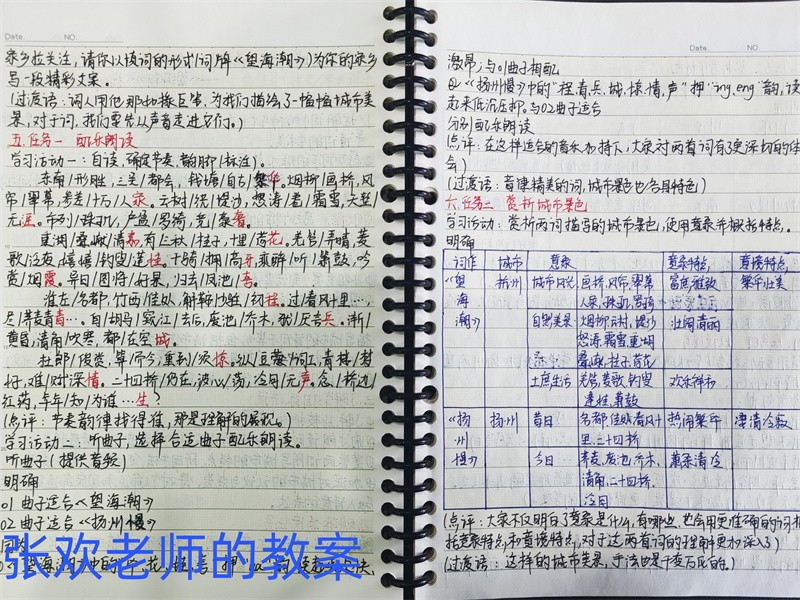 Date. NO.
家乡拉关注，请你以该词的形式(词牌《望海潮》)为你的家乡
写一段精彩文案。
(过渡语：词人用他那如椽巨笔，为我们描绘了一幅幅城市美
景，对于词，我们要先从声音走进它们。)
五.任务一 配乐朗读
学习活动一：自读，确定节奏、韵脚(标注)。
东南/形胜，三吴/都会，钱塘/自古/繁华。烟柳/画桥，风
帘/翠幕，参差/十万/人家。云树/绕/堤沙，怒涛/卷/霜雪，天堑/
无涯。市列/珠玑，户盈/罗绮，竞/豪奢。
重湖/叠巘/清嘉，有/三秋/桂子，十里/荷花。羌管/弄晴，菱
歌/泛夜，嬉嬉/钓叟/莲娃。千骑/拥/高牙，乘醉/听/箫鼓，吟
赏/烟霞。异日/图将/好景，归去/凤池/夸。
淮左/名都，竹西/佳处，解鞍/少驻/初程。过/春风十里…，
尽/荠麦青青…。自/胡马/窥江/去后，废池/乔木，犹/厌言兵。渐/
黄昏，清角/吹寒，都/在空城。
杜郎/俊赏，算/而今/重到/须惊。纵/豆蔻/词工，青楼/梦
好，难/赋/深情。二十四桥/仍在，波心/荡，冷月/无声。念/桥边/
红药，年年/知/为谁…生？
(点评：节奏韵律找得准，那是理解的展现。)
学习活动二：听曲子，选择合适曲子配乐朗读。
听曲子(提供音频)
明确
01曲子适合《望海潮》
02曲子适合《扬州慢》
张欢老师的教案
Date. NO.
激昂，与01曲子相配
②《扬州慢》中的"程、青、兵、城、惊、情、声"押"ing、eng"韵，读
起来低沉压抑。与02曲子适合
分别配乐朗读
(点评：在这样适合的音乐加持下，大家对两首词有了更深切的体
会)
(过渡语：音律精美的词，城市景色也各具特色)
六.任务二 赏析城市景色
学习活动：赏析两词描写的城市景色，使用意象并概括特点。
明确
词作 城市 意象 意象特点 意境特点
《望 扬州 城市风光 画桥、风帘、翠幕 富庶雅致 繁华壮美
海 人家、珠玑、罗绮
潮》 自然美景 烟柳、云树、堤沙 壮阔清丽
怒涛、霜雪、重湖
叠巘、桂子、荷花
土庶生活 羌管、菱歌、钓叟 欢乐祥和
莲娃、箫鼓
《扬 扬州 昔日 名都、佳处、春风十 热闹繁华 凄清冷寂
州 里、二十四桥
慢》 今日 荠麦、废池、乔木、 萧条清冷
清角、二十四桥、
冷月
(点评：大家不仅明白了意象是什么，有哪些，也会用更准确的词概
括意象特点和意境特点，对于这两首词的理解更加深入了)
(过渡语：这样的城市美景，手法也是千变万化的。)